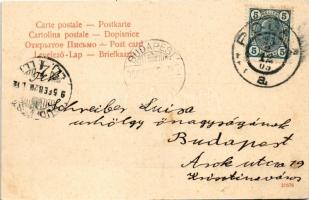 Carte postale – Postkarte
Cartolina postale – Dopisnice
Открытое Письмо – Post card
Levelező-Lap – Briefkaart
BUDAPEST
5 5
5 5
12
05
a.
95 FEB
Schreiber Luisa
úrhölgy önagyságának
Budapest
Arok utcza 19
Krisztinaváros